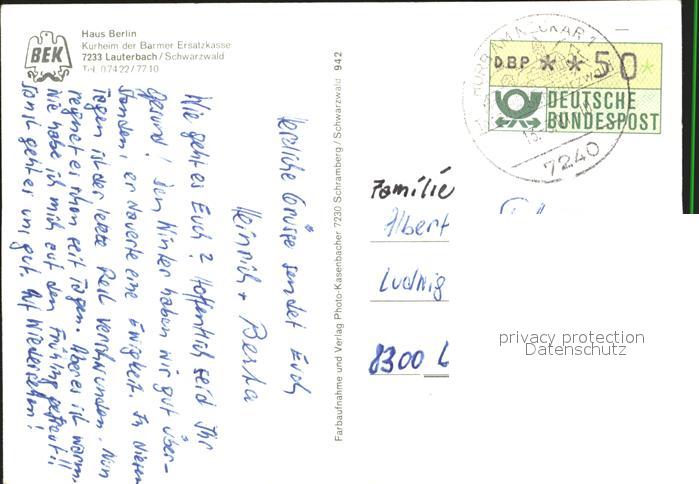 Haus Berlin
Kurheim der Barmer Ersatzkasse
7233 Lauterbach / Schwarzwald
Tel. 07422/7710
BEK
Wie geht es Euch? Hoffentlich seid Ihr
gesund! Den Winter haben wir gut über-
standen, er dauerte eine Ewigkeit. In diesen
Tagen ist der letzte Rest verschwunden. Nun
regnet es schon seit Tagen. Aber es ist warm.
Nie habe ich mich auf den Frühling gefreut!!
Sonst geht es uns gut. Auf Wiedersehen!
Herzliche Grüße sendet Euch
Heinrich + Berta
Farbaufnahme und Verlag Photo-Kasenbacher 7230 Schramberg / Schwarzwald 942
HORB AM NECKAR 1
7240
DBP ** 50*
DEUTSCHE
BUNDESPOST
Familie
Albert
Ludwig
8300 L
privacy protection
Datenschutz